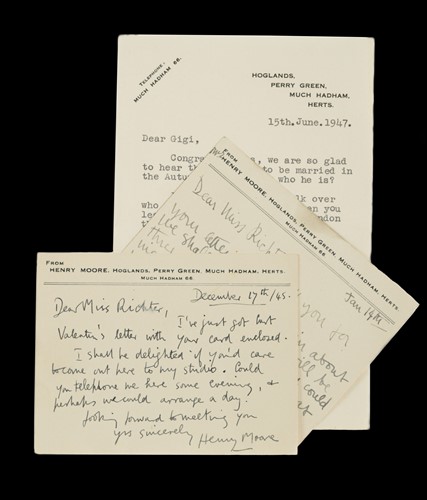 TELEPHONE-
MUCH HADHAM 66.
HOGLANDS,
PERRY GREEN,
MUCH HADHAM,
HERTS.
15th.June.1947.
Dear Gigi,
we are so glad
to hear to be married in
the Autu who he is?
who lk over
le an you
ndon
th
FROM
HENRY MOORE, HOGLANDS, PERRY GREEN, MUCH HADHAM, HERTS.
MUCH HADHAM 66
Jan 14th
Dear Miss Richt
your
you for
about
will be
could
at
FROM
HENRY MOORE, HOGLANDS, PERRY GREEN, MUCH HADHAM, HERTS.
MUCH HADHAM 66
December 17th/45.
Dear Miss Richter,
I've just got Curt
Valentin's letter with your card enclosed.
I shall be delighted if you'd care
to come out here to my studio. Could
you telephone me here some evening, &
perhaps we could arrange a day.
Looking forward to meeting you
yrs sincerely Henry Moore